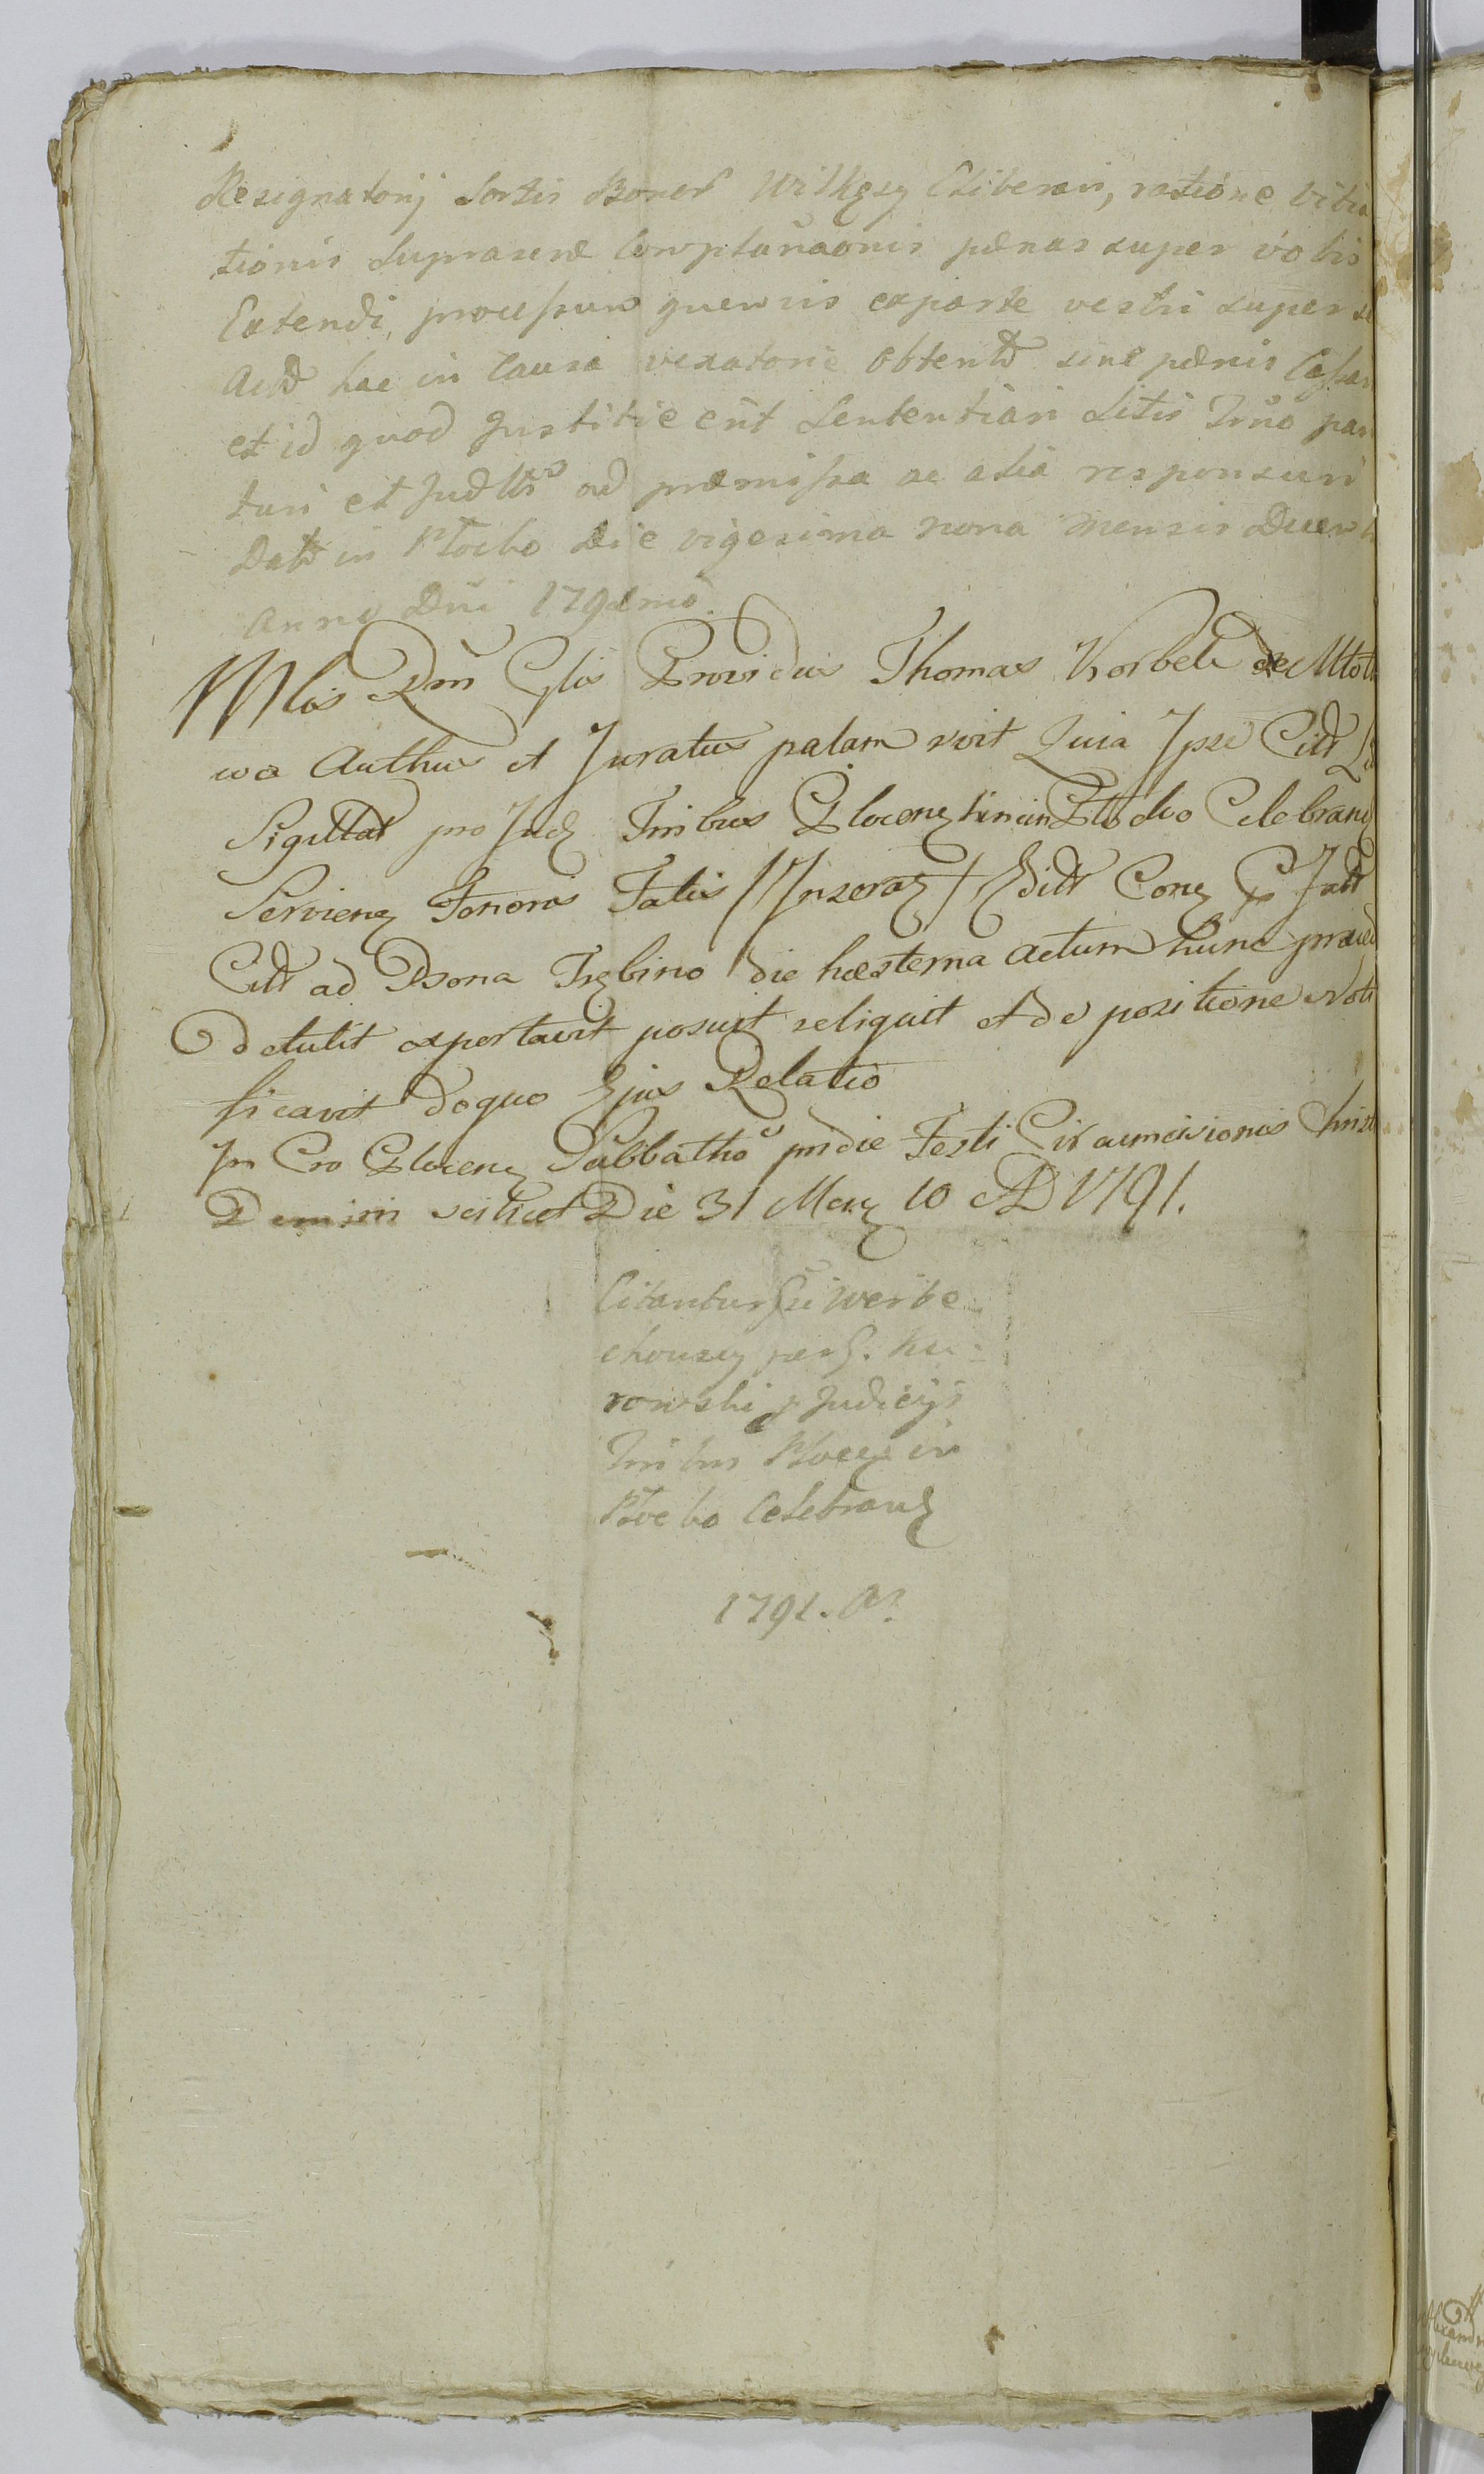 Resignatorij Sortis Bonor Wilkęsy Cliberari, ratione vitia
tionis Suprascræ Complanaonis pænas super vobis
Extendi, processum quemvis exparte vestri super se
Actd hac in Causa vexatorie obtentd sine pænis Cassari
et id quod Justitiæ erit Sententiari Litis Trno pari
turi et Judltr ad præmissa ac alia responsuri
Datt in Płocko die vigesima nona mensis Decem
Anno Dñi 1791mo
Mlis Rni Glis Providus Thomas Korbela de Mto
wa Authus et Juratus palam rvit Quia Ipse Citt
Sigillat pro Judz Tribus Plocenz in Plocko Celebranz
Servienz Tenoris Talis /Inseraz/ Editt Conz P Jatt
Citt ad Bona Trzbino die hæsterna actum hunc præced
Detulit exportavit posuit reliquit et de positione Noti
ficavit de quo Ejus Relatio
In Cro Plocenz Sabbatho pridie Festi Circumcisionis Christi
Domini scilicet Die 31 Menz 10 AD 1791.
Citantur Gsi Wierbe
chowsey per G. Ku-
rowski p Judicijs
Tribus Płocz in
Płocko Celebranz
1791. Ao